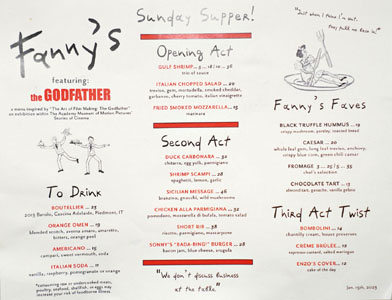 Fanny's
featuring:
the GODFATHER
a menu inspired by "The Art of Film Making: The Godfather"
an exhibition within The Academy Museum of Motion Pictures'
Stories of Cinema
To Drink
BOUTEILLER ... 23
2015 Barolo, Cascina Adelaide, Piedmont, IT
ORANGE OMEN ... 19
blended scotch, averna amaro, amaretto,
bitters, orange peel
AMERICANO ... 15
campari, sweet vermouth, soda
ITALIAN SODA ... 11
vanilla, raspberry, pomegranate or orange
*consuming raw or undercooked meats,
poultry, seafood, shellfish, or eggs may
increase your risk of foodborne illness
Sunday Supper!
Opening Act
GULF SHRIMP ... 5 ... 18 / 10 ... 36
trio of sauce
ITALIAN CHOPPED SALAD ... 20
treviso, gem, mortadella, smoked cheddar,
garbanzo, cherry tomato, italian vinaigrette
FRIED SMOKED MOZZARELLA ... 15
marinara
Second Act
DUCK CARBONARA ... 32
chitarra, egg yolk, parmigiano
SHRIMP SCAMPI ... 28
spaghetti, lemon, garlic
SICILIAN MESSAGE ... 46
branzino, gnocchi, wild mushrooms
CHICKEN ALLA PARMIGIANA ... 32
pomodoro, mozzarella di bufala, tomato salad
SHORT RIB ... 38
risotto, parmigiano, mascarpone
SONNY'S "BADA-BING" BURGER ... 28
bacon jam, blue cheese, arugula
"We don't discuss business
at the table"
"Just when I think I'm out,
they pull me back in!"
Fanny's Faves
BLACK TRUFFLE HUMMUS ... 19
crispy mushroom, parsley, toasted bread
CAESAR ... 20
whole leaf gem, long leaf treviso, anchovy,
crispy blue corn, green chili caesar
FROMAGE 3 ... 25 / 5 ... 35
chef's selection
CHOCOLATE TART ... 13
almond, ganache, vanilla gelato
Third Act Twist
BOMBOLINI ... 14
chantilly cream, housemade preserves
CRÈME BRÛLÉE ... 13
espresso custard, cornet whipped
ENZO'S COVER ... 12
cake of the day
Jan. 15th, 2023